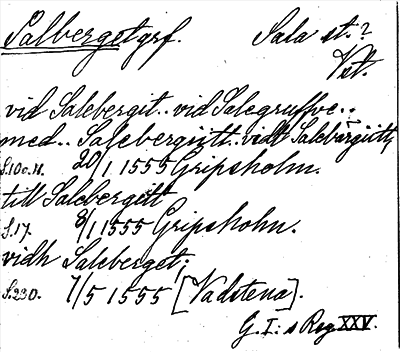 Salberget grf. Sala st.?
Vst.
vid Salebergit.. vid Salegruffve..
med.. Salebergitt.. vidt Salebärgitt,
S.10 o. 11. 20/1 1555 Gripsholm.
till Salebergitt
S.17. 8/1 1555 Gripsholm.
vidh Saleberget;
S.230. 7/5 1555 [Vadstena].
G. I: s Reg XXV.